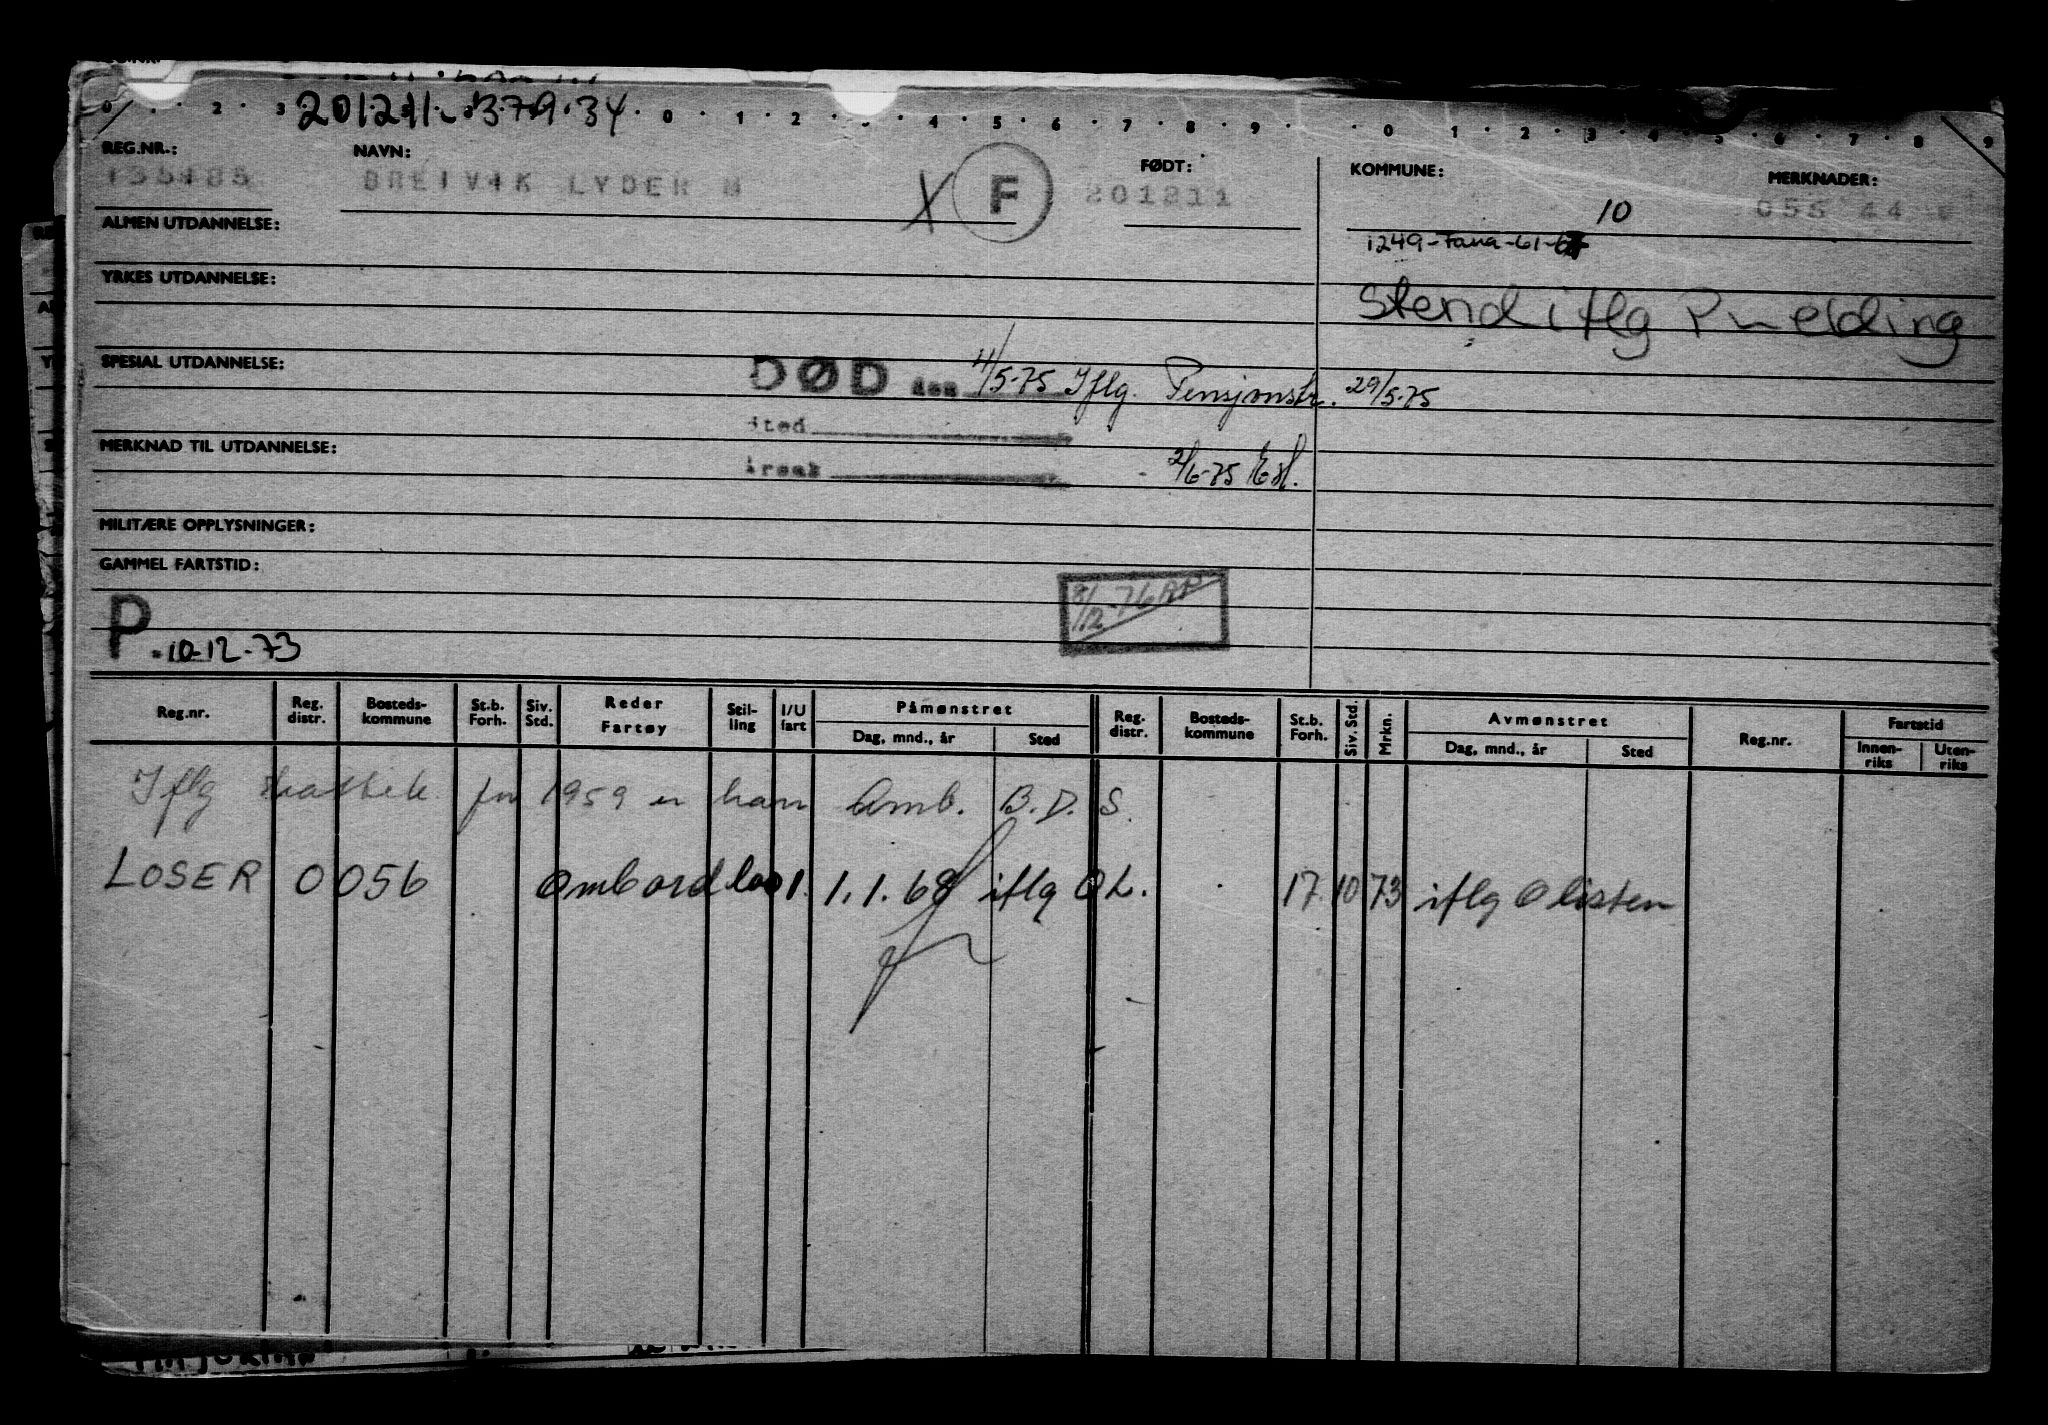 201211 37934
0 . . 2 . 3 . 0 . 1 . 2 . . 4 . 5 . 6 . 7 . 8 . 9 . . 0 . 1 . 2 . 3 . 4 . 5 . 6 . 7 . 8 . 9
REG.NR.: NAVN: FØDT: KOMMUNE: MERKNADER:
135185 BREIVIK LYDER N X F 201211 10 056 44
ALMEN UTDANNELSE: 1249-Fana-61-67
YRKES UTDANNELSE:
Stend iflg P melding
SPESIAL UTDANNELSE: DØD den 11/5-75 Iflg. Pensjonstr. 29/5-75
sted
MERKNAD TIL UTDANNELSE: årsak 2/6-75
MILITÆRE OPPLYSNINGER:
GAMMEL FARTSTID:
8/12-76
P. 10-12-73
Reg.nr. Reg. distr. Bosteds-kommune St.b. Forh. Siv. Std. Reder Fartøy Stil-ling I/U fart Påmønstret Dag, mnd., år Sted Reg. distr. Bosteds-kommune St.b. Forh. Siv. Std. Mrkn. Avmønstret Dag, mnd., år Sted Reg.nr. Fartstid Innen-riks Uten-riks
Iflg for 1959 er han Omb. B.D.S.
LOSER 0056 Ombord los 1. 1.1.68 iflg OL. 17 10 73 iflg O listen